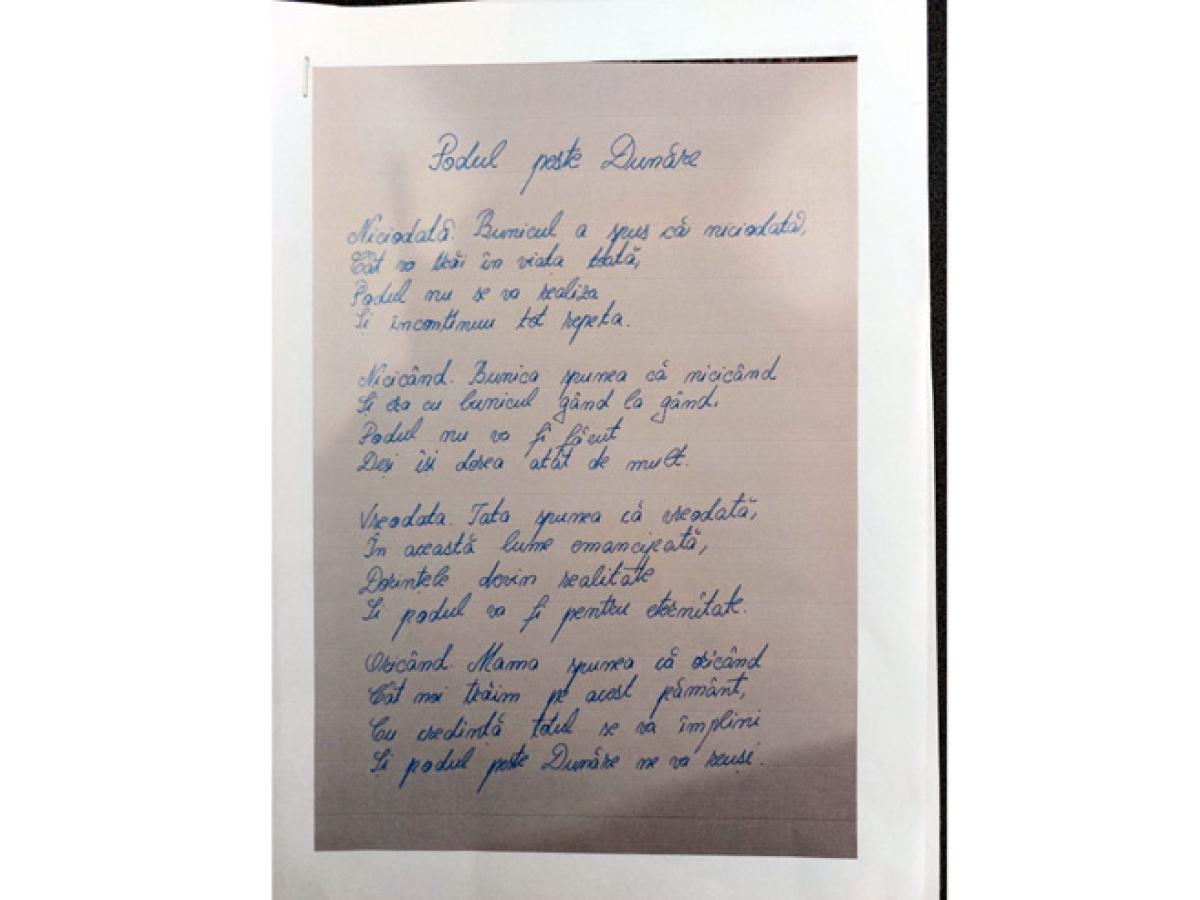 Podul peste Dunăre
Niciodată. Bunicul a spus că niciodată,
Cât va trăi în viața toată,
Podul nu se va realiza
Și încontinuu tot repeta.
Nicicând. Bunica spunea că nicicând
Și era cu bunicul gând la gând.
Podul nu va fi făcut
Deși își dorea atât de mult.
Vreodata. Tata spunea că vreodată,
În această lume emancipată,
Dorințele devin realitate
Și podul va fi pentru eternitate.
Oricând. Mama spunea că oricând
Cât noi trăim pe acest pământ,
Cu credință totul se va împlini
Și podul peste Dunăre ne va reuși.